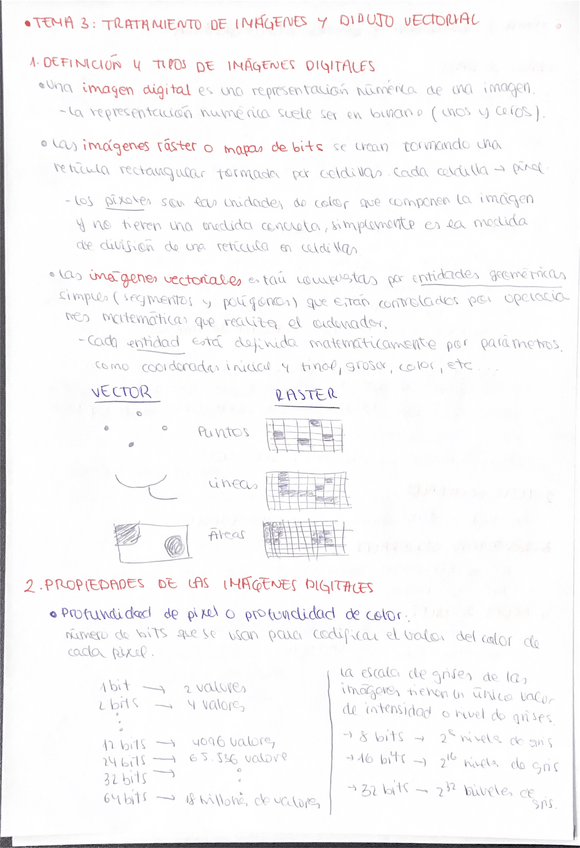 • TEMA 3: TRATAMIENTO DE IMÁGENES Y DIBUJO VECTORIAL
1. DEFINICIÓN Y TIPOS DE IMÁGENES DIGITALES
• Una imagen digital es una representación numérica de una imagen.
- La representación numérica suele ser en binario (unos y ceros).
• Las imágenes ráster o mapas de bits se crean formando una
retícula rectangular formada por celdillas. Cada celdilla → píxel.
- Los píxeles son las unidades de color que componen la imagen
y no tienen una medida concreta, simplemente es la medida
de división de una retícula en celdillas.
• Las imágenes vectoriales están compuestas por entidades geométricas
simples (segmentos y polígonos) que están controlados por operacio
nes matemáticas que realiza el ordenador.
- Cada entidad está definida matemáticamente por parámetros.
como coordenadas inicial y final, grosor, color, etc...
VECTOR RASTER
Puntos
Líneas
Áreas
2. PROPIEDADES DE LAS IMÁGENES DIGITALES
• Profundidad de pixel o profundidad de color:
número de bits que se usan para codificar el valor del color de
cada píxel.
1 bit → 2 valores
2 bits → 4 valores
12 bits → 4096 valores
24 bits → 65.536 valore
32 bits →
64 bits → 18 billones de valores
La escala de grises de las
imágenes tienen un único valor
de intensidad o nivel de grises
→ 8 bits → 2⁸ niveles de gris
→ 16 bits → 2¹⁶ niveles de gris
→ 32 bits → 2³² niveles de
gris.